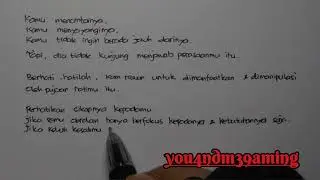 Kamu mencintainya.
Kamu menyayanginya.
Kamu tidak ingin berada jauh darinya.
Tapi, dia tidak kunjung menjawab perasaanmu itu.
Berhati-hatilah, kam rawan untuk dimanfaatkan & dimanipulasi
oleh pujaan hatimu itu.
Perhatikan sikapnya kepadamu
Jika semua obrolan hanya berfokus kepadanya & kebutuhannya saja.
Jika keluh kesahmu
you4ndm39aming